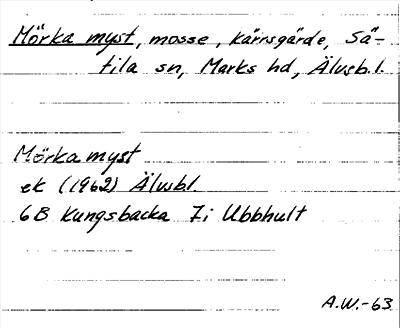 Mörka myst, mosse, Kärrsgärde, Sä-
tila sn, Marks hd, Älvsb. l.
Mörka myst
ek (1962) Älvsbl.
6B Kungsbacka 7i Ubbhult
A.W.-63